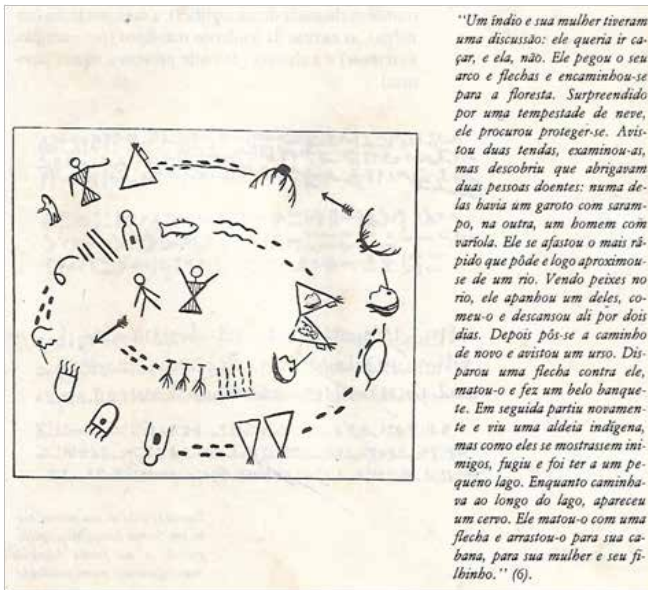 "Um índio e sua mulher tiveram
uma discussão: ele queria ir ca-
çar, e ela, não. Ele pegou o seu
arco e flechas e encaminhou-se
para a floresta. Surpreendido
por uma tempestade de neve,
ele procurou proteger-se. Avis-
tou duas tendas, examinou-as,
mas descobriu que abrigavam
duas pessoas doentes: numa de-
las havia um garoto com saram-
po, na outra, um homem com
varíola. Ele se afastou o mais rá-
pido que pôde e logo aproximou-
se de um rio. Vendo peixes no
rio, ele apanhou um deles, co-
meu-o e descansou ali por dois
dias. Depois pôs-se a caminho
de novo e avistou um urso. Dis-
parou uma flecha contra ele,
matou-o e fez um belo banque-
te. Em seguida partiu novamen-
te e viu uma aldeia indígena,
mas como eles se mostrassem ini-
migos, fugiu e foi ter a um pe-
queno lago. Enquanto caminha-
va ao longo do lago, apareceu
um cervo. Ele matou-o com uma
flecha e arrastou-o para sua ca-
bana, para sua mulher e seu fi-
lhinho." (6).